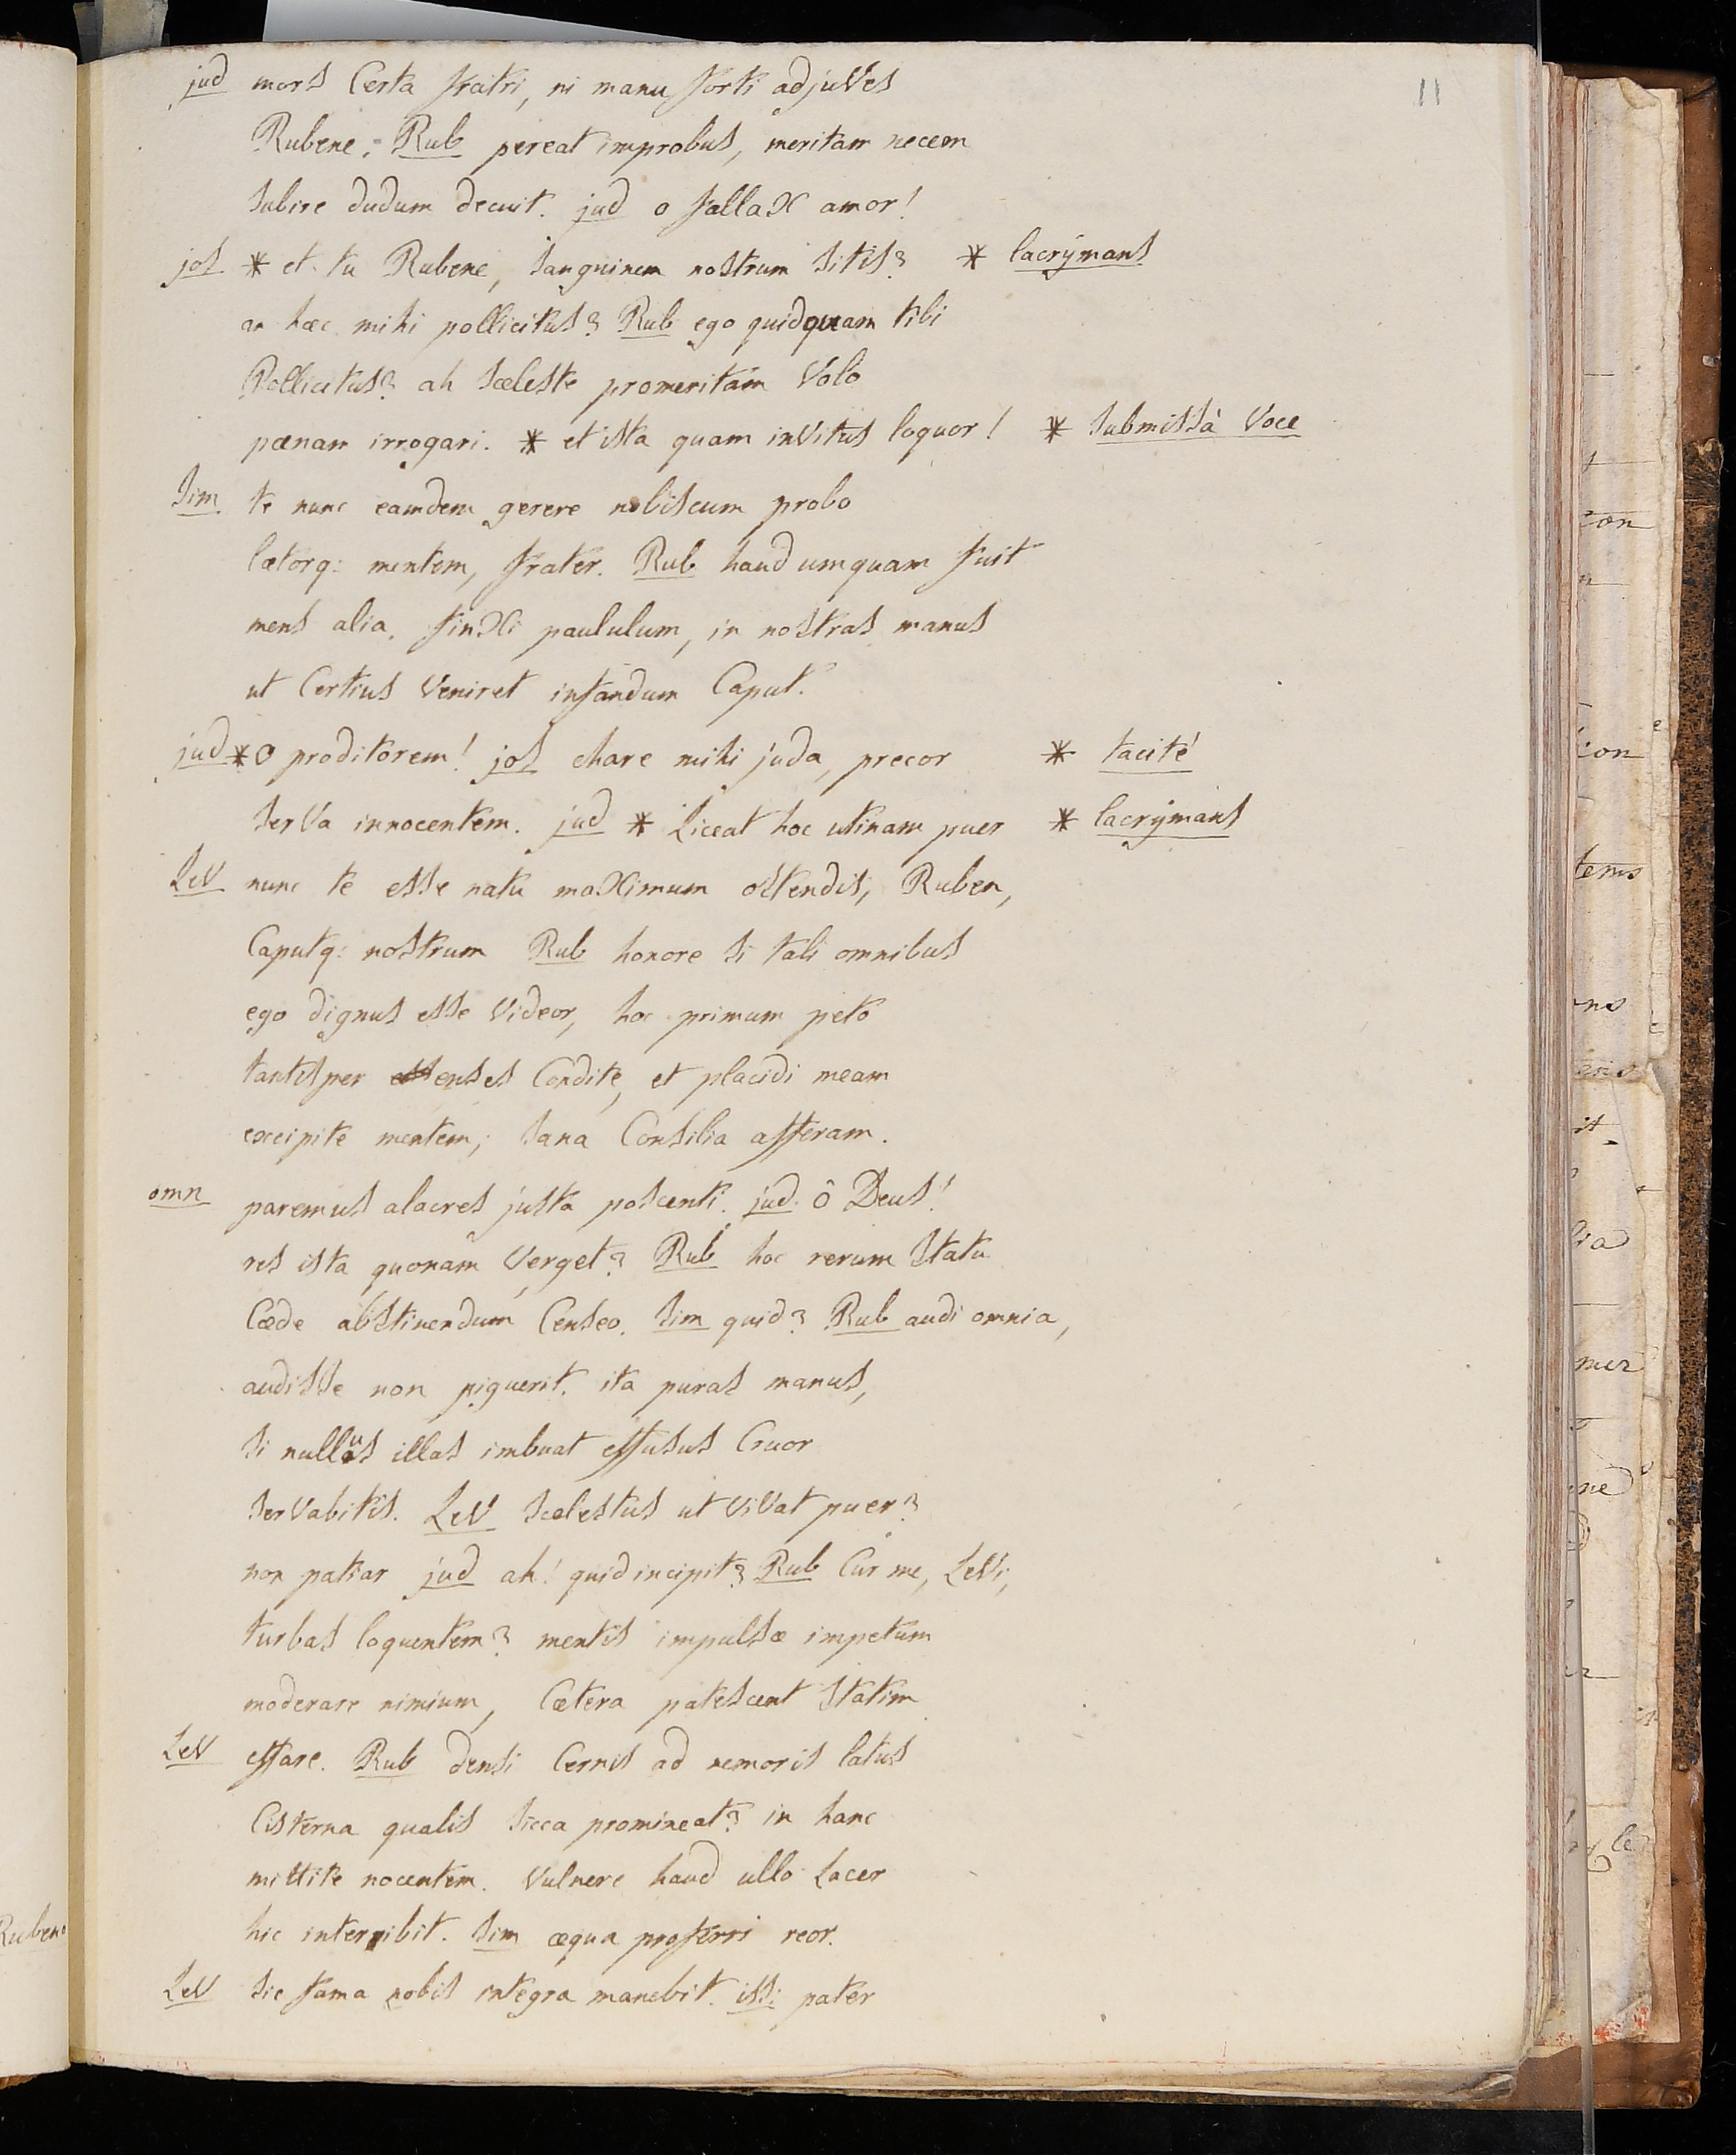 11
jud mors Certa fratri, ni manu forti adjuVes
Rubene. Rub pereat improbus, meritam necem
subire dudum decuit. jud o fallaX amor!
jos * et tu Rubene, sanguinem nostrum sitis? * lacrÿmans
an hæc mihi pollicitus? Rub ego quidquam tibi
Pollicitus? ah sceleste promeritam Volo
pœnam irrogari. * et ista quam inVitus loquor! * submissâ Voce
Sim te nunc eamdem gerere nobiscum probo
lætorq: mentem, frater. Rub haud umquam fuit
mens alia. finXi paululum, in nostras manus
ut Certius Veniret infandum Caput.
jud * o proditorem! jos chare mihi juda, precor * tacité
serVa innocentem. jud * Liceat hoc utinam puer * lacrÿmans
LeV nunc te esse natu maXimum ostendis, Ruben,
Caputq: nostrum Rub honore si tali omnibus
ego dignus esse Videor, hoc primum peto
tantisper enses Condite, et placidi meam
excipite mentem; sana Consilia afferam.
omn paremus alacres justa poscenti. jud ô Deus!
res ista quonam Verget? Rub hoc rerum statu
Cæde abstinendum Censeo. Sim quid? Rub audi omnia,
audisse non piguerit. ita puras manus,
si nullus illas imbuat effusus Cruor
serVabitis. LeV scelestus ut ViVat puer?
non patiar jud ah! quid incipit? Rub Cur me, LeVi,
turbas loquentem? mentis impulsæ impetum
moderare nimium, Cætera patescent statim
LeV effare. Rub densi Cernis ad nemoris latus
Cisterna qualis sicca promineat? in hanc
mittite nocentem. Vulnere haud ullo Lacer
hic interibit. Sim æqua proferri reor.
LeV sic fama nobis integra manebit. iss: pater
Ruben